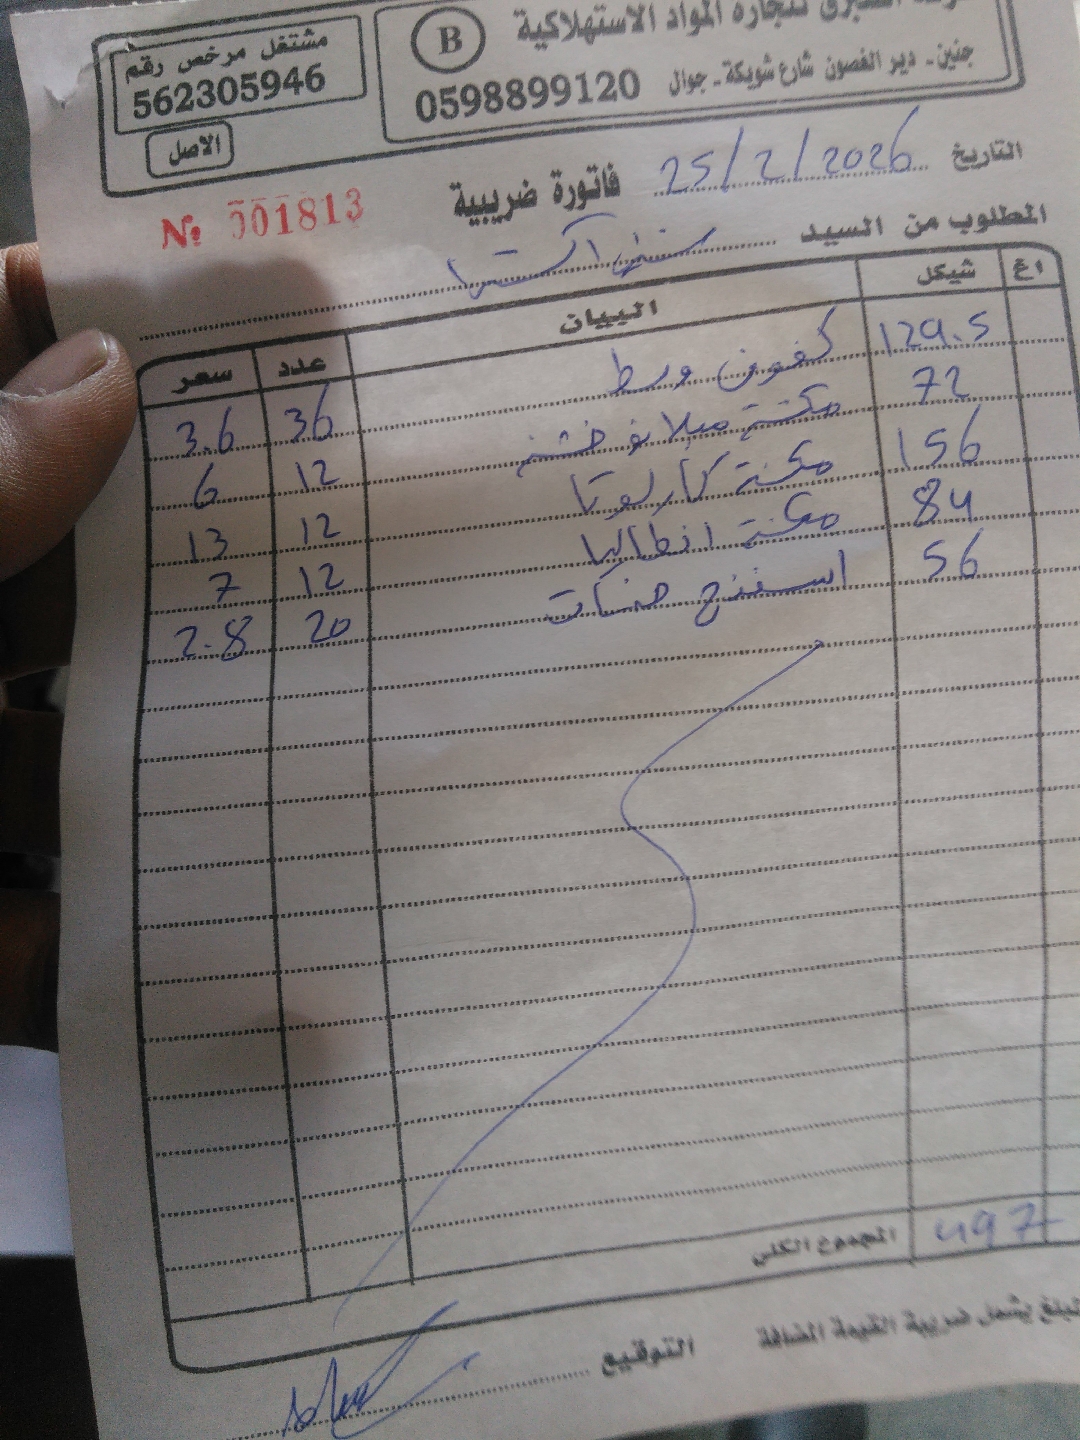 لتجارة المواد الاستهلاكية
B
جنين - دير الغصون شارع شويكة - جوال 0598899120
مشتغل مرخص رقم
562305946
الاصل
التاريخ 25/2/2026
فاتورة ضريبية
№ 001813
المطلوب من السيد
اغ شيكل البيان عدد سعر
129.5 كفوف وسط 36 3.6
72 مكنسة ميلانو خشنة 12 6
156 مكنسة كارلوتا 12 13
84 مكنسة انطاليا 12 7
56 اسفنج 20 2.8
المجموع الكلي 497
المبلغ يشمل ضريبة القيمة المضافة
التوقيع